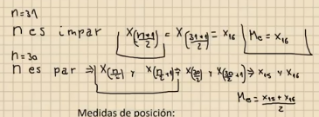 n=31
n es impar X(n+1/2) = X(31+1/2) = X16 | Me = X16
n=30
n es par ⇒ X(n/2) y X(n/2+1) ⇒ X(30/2) y X(30/2+1) ⇒ X15 y X16
Me = X15+X16/2
Medidas de posición: